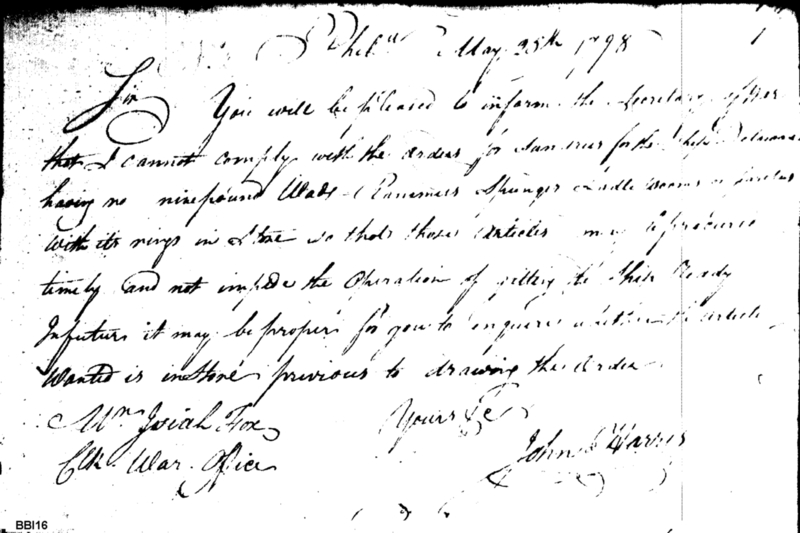 Phila May 25th 1798
Sir You will be pleased to inform the Secretary of War
that I cannot comply with the orders for Sundries for the Ship Delaware
having no ninepound Wads Rammers Spunges Ladle Worms or
with its rings in Store so that those Articles may be procured
timely and not impede the Operation of getting the Ship Ready
In future it may be proper for you to enquire whether the article
Wanted is in Store previous to drawing the Order
Mr Josiah Fox Yours &c
Clk War Office John Harris
BBI16